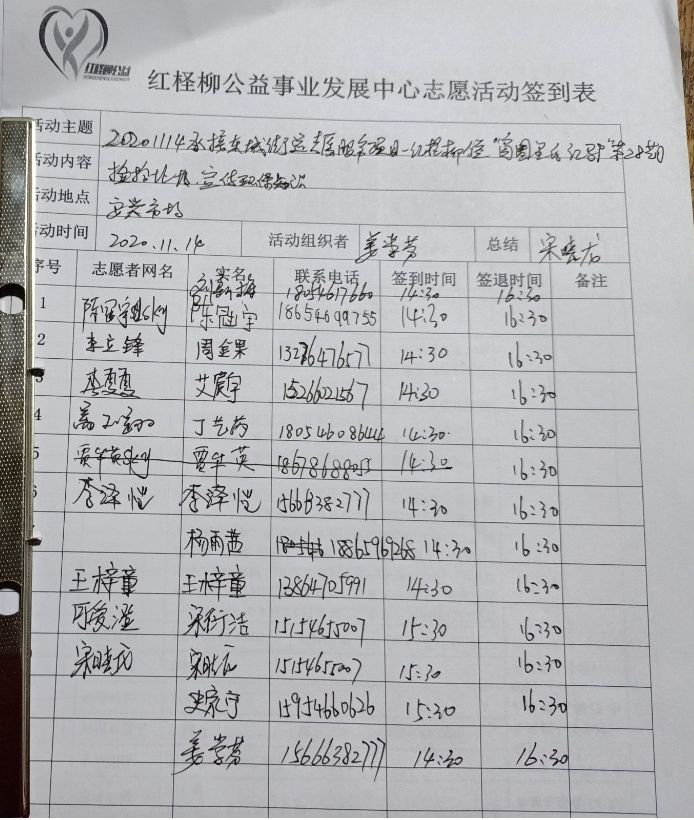 红柽柳公益
红柽柳公益事业发展中心志愿活动签到表
活动主题 20201114承接东城街道志愿服务项目—红柽柳位"
活动内容 捡拾垃圾、宣传环保知识
活动地点 安兴市场
活动时间 2020.11.14 活动组织者 姜学芬 总结 宋晓龙
序号 志愿者网名 实名 联系电话 签到时间 签退时间 备注
18054617660 14:30 16:30
1 陈冠宇 18654699755 14:30 16:30
2 李立锋 周金果 14:30 16:30
3 李夏夏 艾宸宇 15266021567 14:30 16:30
4 丁艺芮 18054608644 14:30 16:30
5 贾华英 18678688055 14:30 16:30
6 李泽恺 李泽恺 15666382777 14:30 16:30
杨雨茜 18865969268 14:30 16:30
王梓童 王梓童 13864705991 14:30 16:30
可爱滋 宋衍洁 15154655007 15:30 16:30
15154655007 15:30 16:30
史家宁 15954660626 15:30 16:30
姜学芬 15666382777 14:30 16:30